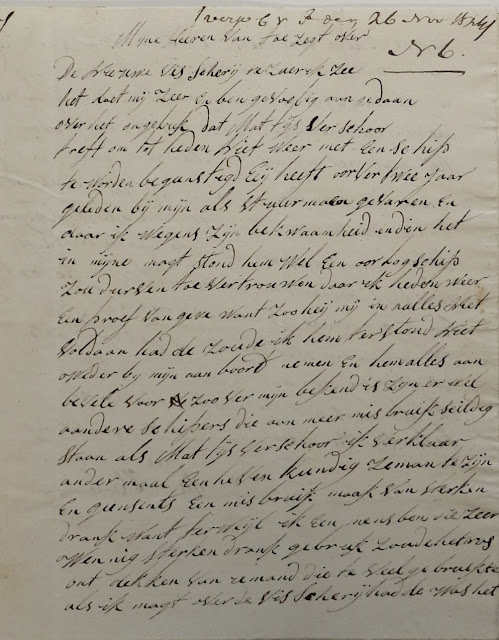 den 26 Nov 1824
Mijne Heeren Van Toe Zegt over
N 6.
De Nieuwe Vis Scherij te Zierik Zee
het doet mij Zeer En ben gevoelig aan gedaan
over het ongeluk dat Mat tijs Ver schoor
treft om tot heden Niet Weer met Een schip
te Worden begunstegd Eij heeft voor Ver twee Jaar
geleden bij mijn als Stuurman gevaren En
daar ik Wegens Zijn bekwaamheid indien het
in mijne magt stond hem Wel Een oorlog schip
Zou durven toe Vertrouwen daar ik heden Weer
Een proef Van geve Want Zoo hij mij in aalles Niet
Voldaan had de Zoude ik hem terstond Niet
Weder bij mijn aan boord nemen En hem alles aan
bevele Voor Zoo Ver mijn bekend is Zijn er Vil
aandere schipers die aan meer mis bruijk schuldig
staan als Mat tijs Verschoor ik Verklaar
ander maal Een hef En kundig Zeman te Zijn
En geensints Een mis bruijk maak Van sterken
drank Want ter Wijl ik Een mens ben die Zeer
Wen nig sterken drank gebruijk Zoude het
ont dekken Van iemand die te Veel gebruikte
als ik magt over de Vis Scherij had de Was het